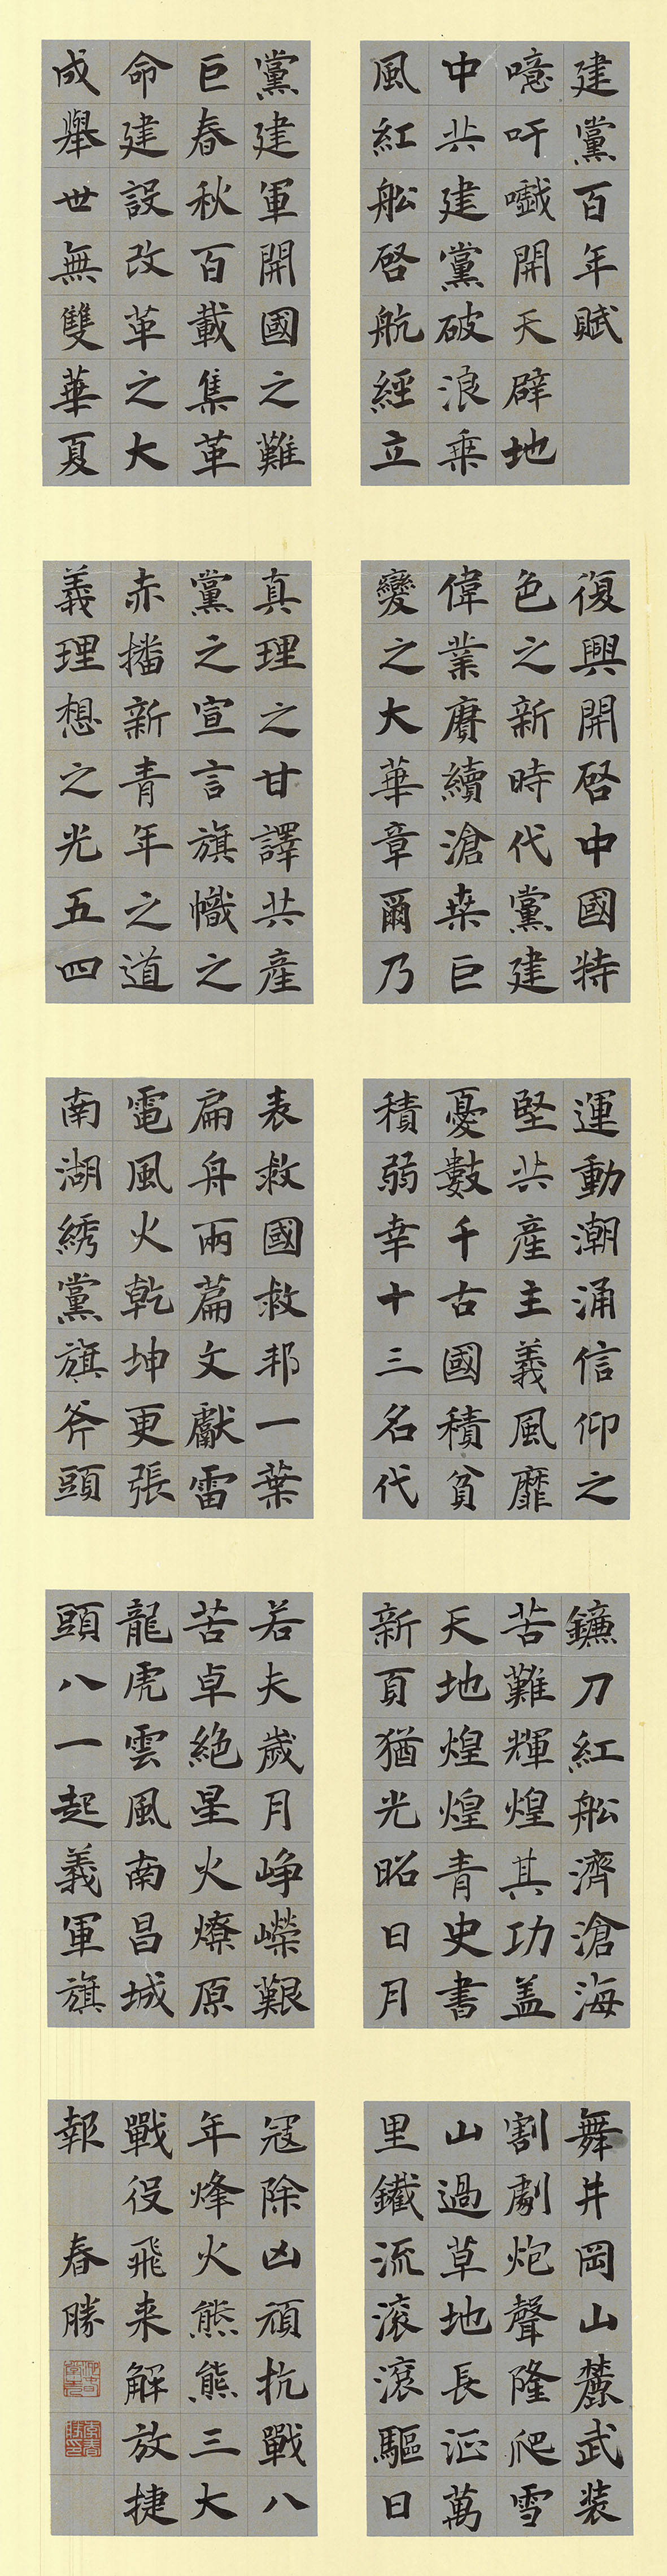 建黨百年賦
噫吁嚱開天辟地
中共建黨破浪乘
風紅舩啓航經立
黨建軍開國之難
巨春秋百載集革
命建設改革之大
成舉世無雙華夏
復興開啓中國特
色之新時代黨建
偉業賡續滄桑巨
變之大華章爾乃
真理之甘譯共產
黨之宣言旗幟之
赤播新青年之道
義理想之光五四
運動潮涌信仰之
堅共產主義風靡
憂數千古國積貧
積弱幸十三名代
表救國救邦一葉
扁舟兩篇文獻雷
電風火乾坤更張
南湖綉黨旗斧頭
鐮刀紅舩濟滄海
苦難輝煌其功盖
天地煌煌青史書
新頁猶光昭日月
若夫歲月崢嶸艱
苦卓絕星火燎原
龍虎雲風南昌城
頭八一起義軍旗
舞井岡山麓武裝
割劇炮聲隆爬雪
山過草地長征萬
里鐵流滾滾驅日
寇除凶頑抗戰八
年烽火熊熊三大
戰役飛来解放捷
報 春勝